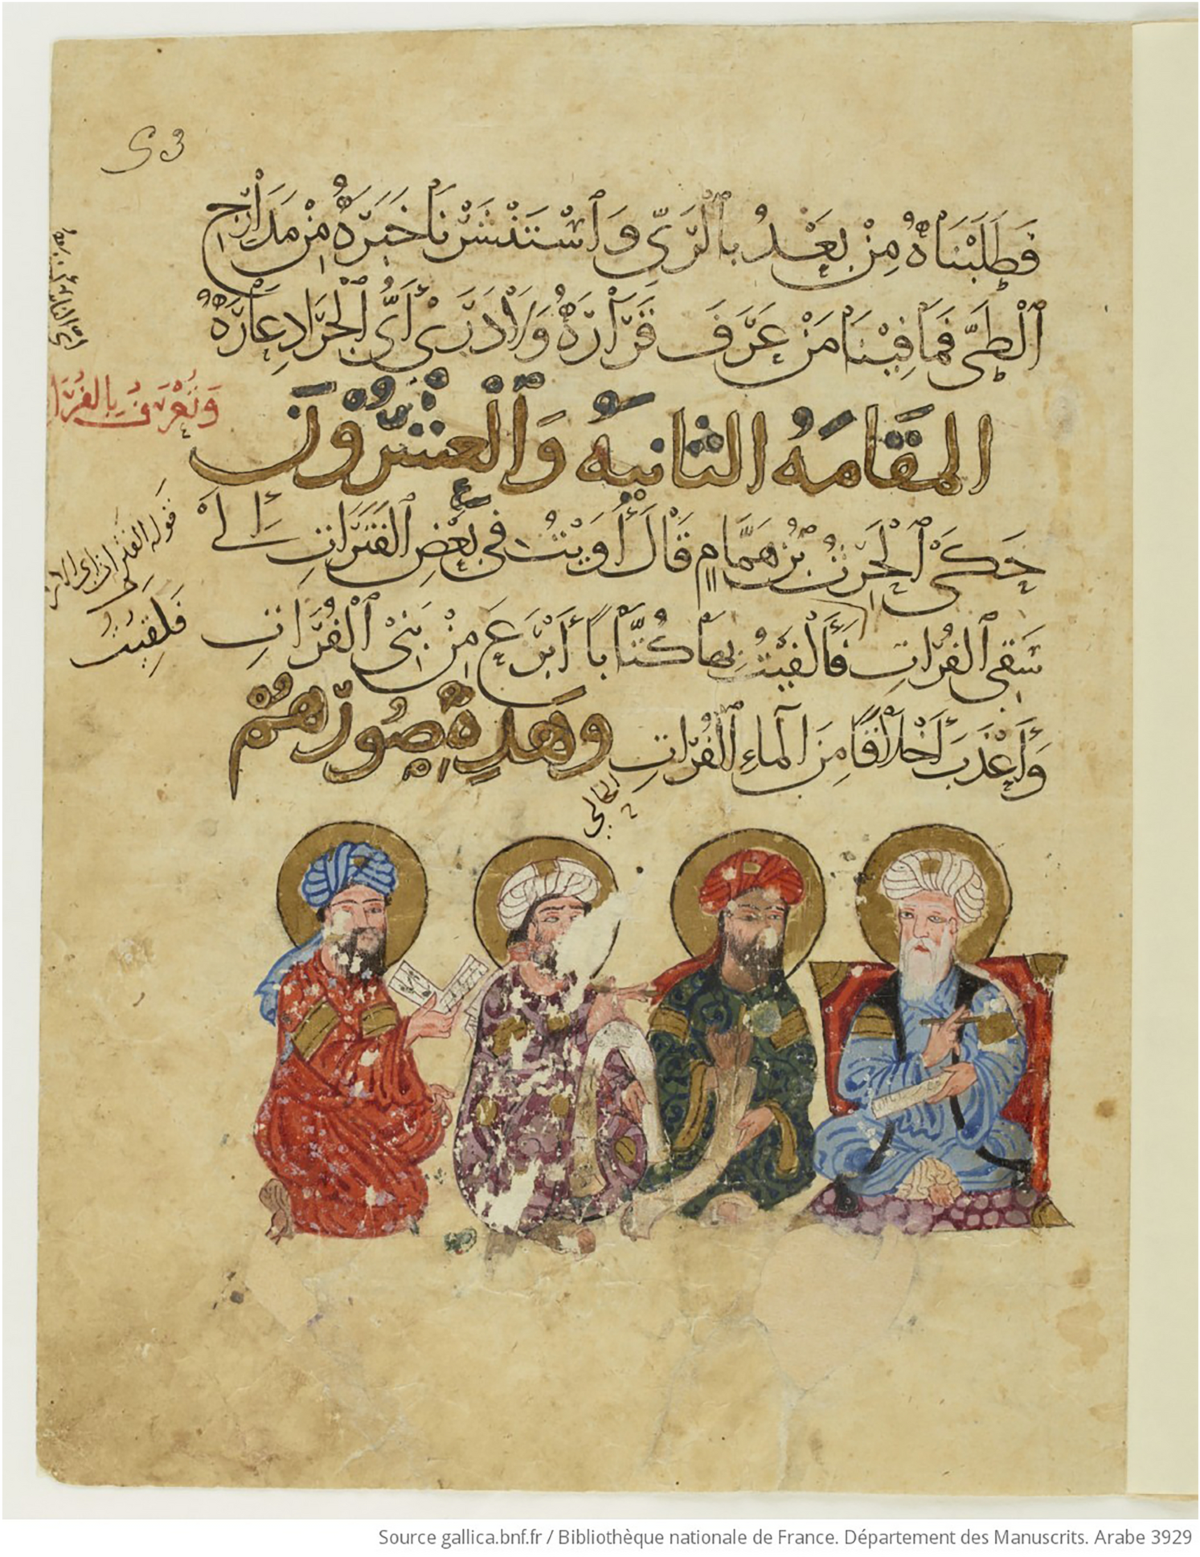 53
فَطَلَبْنَاهُ مِنْ بَعْدُ بِالرَّيِّ وَاسْتَنْشَرْنَا خَبَرَهُ مِنْ مَدَارِجِ
الْطَيِّ فَمَا فِيْنَا مَنْ عَرَفَ قَرَارَهُ وَلَا دَرَىْ أَيُّ الْجَرَادِ عَارَهُ
وَتُعْرَفُ بِالفُرَا
المَقَامَهُ الثَانِيهُ وَالْعِشْرُوْنَ
حَكَىْ الْحٰرِثُ بْنُ هَمَّامٍ قَالَ أَوَيْتُ فِي بَعْضِ الفَتَرَاتِ إِلَىْ
سَقْيِ الفُرَاتِ فَأَلْفَيْتُ بِهَا كُتَّابًا أَبْرَعَ مِنْ بَنِيْ الْفُرَاتِ
فَلَقِيْتُ
وَأَعْذَبَ أَخْلَاقًا مِنَ الْمَاءِ الْفُرَاتِ وَهَذِهِ صُورَهُمْ
Source gallica.bnf.fr / Bibliothèque nationale de France. Département des Manuscrits. Arabe 3929